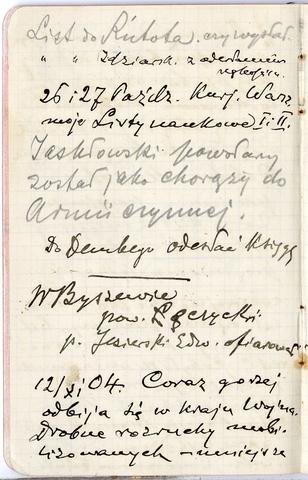 List do Rutota. czy wysłał.
" " Zdziarsk. z odesłaniem
rękopisu.
26 i 27 Paźdz. Kurj. Warsz.
moje Listy naukowe I i II.
Jaskłowski powołany
został jako chorąży do
Armii czynnej.
Do Dembego odesłać Księgę
W Byszewie
pow. Łęczycki.
p. Jezierski Edw. ofiarował
12/XI 04. Coraz gorzej
odbija się w kraju Wojna.
Drobne rozruchy mobi-
lizowanych – mniejsze